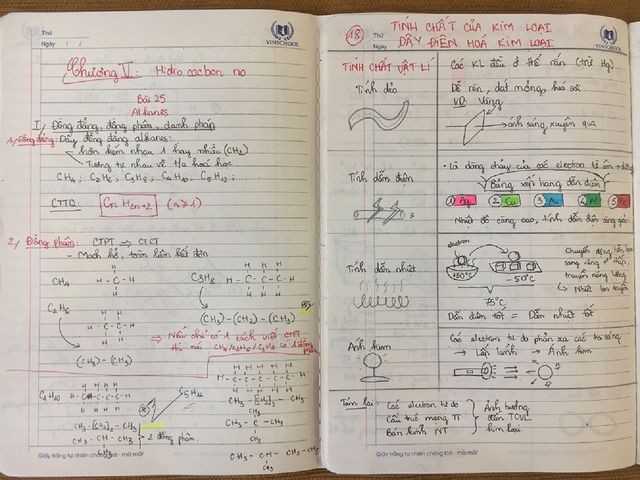 Thứ
Ngày / /
VINSCHOOL
Chương V: Hidro cacbon no
Bài 25
Alkanes
I, Đồng đẳng, đồng phân, danh pháp
1, Đồng đẳng: Dãy đồng đẳng alkanes:
hơn kém nhau 1 hay nhiều (CH2)
Tương tự nhau về t/c hoá học
CH4; C2H6; C3H8; C4H10; C5H12;
CTTQ: CnH2n+2 (n≥1)
2, Đồng phân: CTPT ⇒ CTCT
- Mạch hở, toàn liên kết đơn
CH4
H H H H
H-C-H
H
C3H8
H-C-C-C-H
H H H
C2H6
(CH3)-(CH2)-(CH3)
H H
H-C-C-H
H H
⇒ Nếu chỉ có 1 cách viết CTCT
thì nói CH4/C2H6/C3H8 có 1 đồng phân
(CH3)-(CH3)
C4H10
C5H12
CH3-[CH2]2-CH3
CH3-CH-CH3
CH3
2 đồng phân
CH3-[CH2]3-CH3
CH3
CH3-C-CH3
CH3
CH3-CH-CH2-CH3
CH3
Giấy trắng tự nhiên chống loá - mỏi mắt
18
Thứ
Ngày
TÍNH CHẤT CỦA KIM LOẠI
DÃY ĐIỆN HOÁ KIM LOẠI
VINSCHOOL
TÍNH CHẤT VẬT LÍ
Các KL đều ở thể rắn (trừ Hg)
Tính dẻo
Dễ rèn, dát mỏng, kéo sợi
VD: Vàng
ánh sáng xuyên qua
Tính dẫn điện
Là dòng chảy của các electron tự
Bảng xếp hạng dẫn điện
1 Ag 2 Cu 3 Au 4 Al 5 Fe
Nhiệt độ càng cao, tính dẫn điện càng giảm
Tính dẫn nhiệt
electron
150°C
-50°C
75°C
Chuyển động hỗn loạn
sang vùng
truyền năng lượng
Nhiệt lan truyền
Dẫn điện tốt = Dẫn nhiệt tốt
Ánh kim
Các electron tự do phản xạ các tia sáng
→ Lấp lánh → Ánh kim
Tóm lại:
Các electron tự do
Cấu trúc mạng TT
Bán kính NT
Ảnh hưởng
đến TCVL
kim loại
Giấy trắng tự nhiên chống loá - mỏi mắt